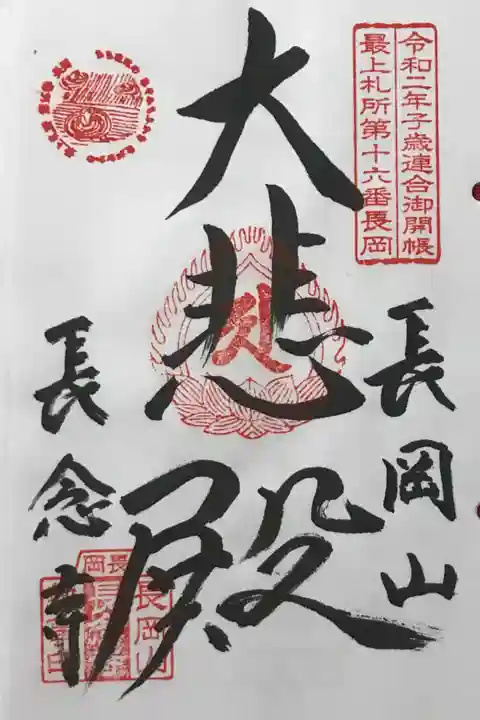 令和二年子歳連合御開帳
最上札所第十六番長岡
長岡山
大悲殿
長念寺
長岡山